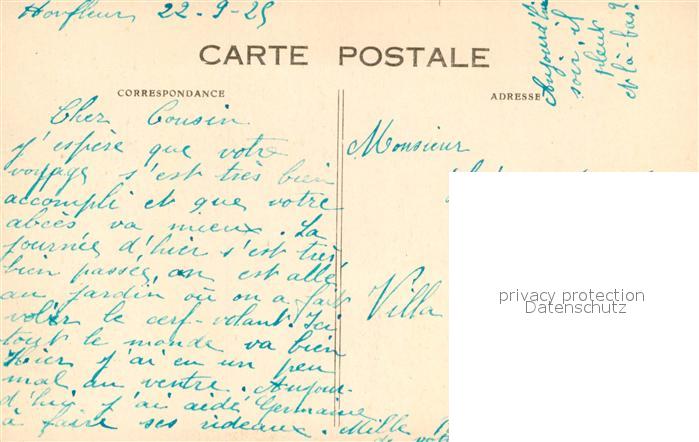 Honfleur 22-9-25
Aujourd'hui
soir, il
pleut
et là-bas?
CARTE POSTALE
CORRESPONDANCE
ADRESSE
Cher Cousin
j'espère que votre
voyage s'est très bien
accompli et que votre
abcès va mieux. La
journée d'hier s'est très
bien passée, on est allé
au jardin où on a fait
voler le cerf-volant. Ici
tout le monde va bien
Hier j'ai eu un peu
mal au ventre. Aujour-
d'hui j'ai aidé Germaine
à faire ses rideaux. Mille
de votre
Monsieur
Villa
privacy protection
Datenschutz